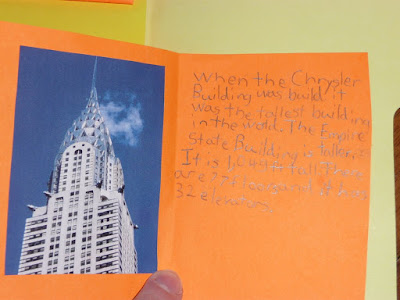 When the Chrysler
Building was build it
was the tallest building
in the world. The Empire
State Building is taller.
It is 1,044 ft tall. There
are 77
32 elevators